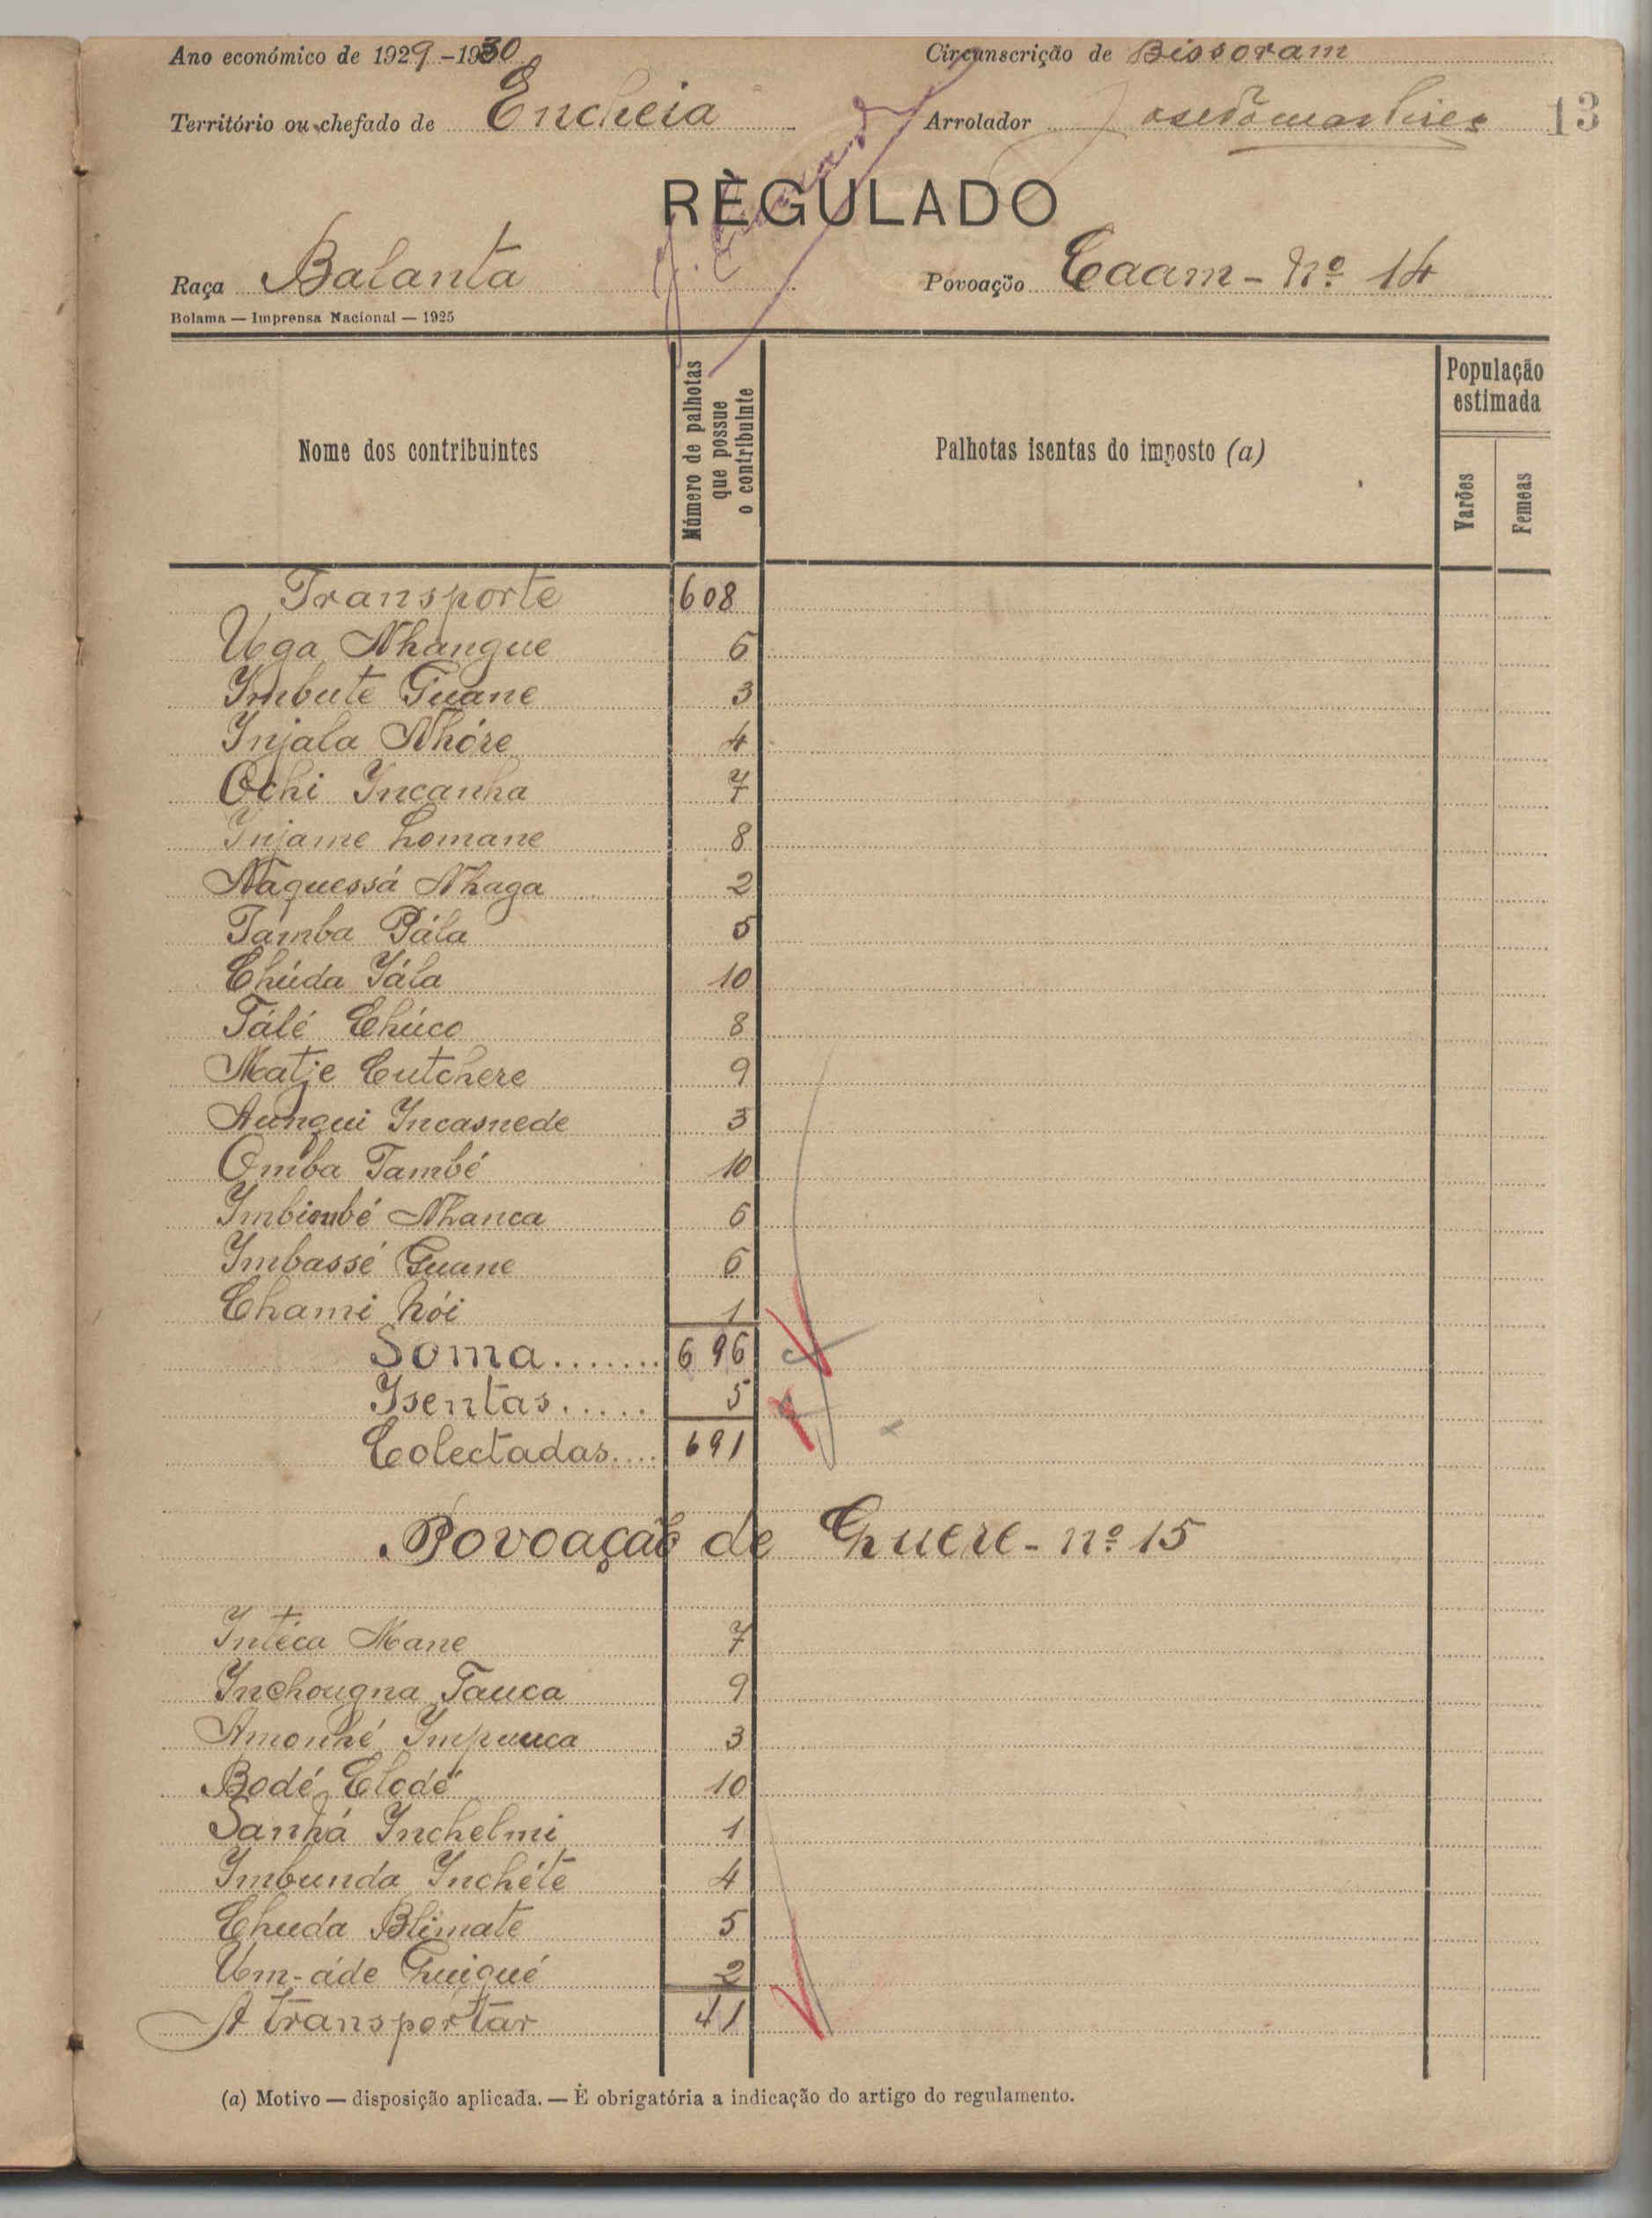 Ano económico de 1929-1930
Circunscrição de Bissoram
Território ou chefado de Encheia
Arrolador
13
RÈGULADO
Raça Balanta
Povoação Caam - Nº 14
Bolama — Imprensa Nacional — 1925
Nome dos contribuintes
Número de palhotas que possue o contribuinte
Palhotas isentas do imposto (a)
População estimada
Varões
Femeas
Transporte 608
Uga Nhangue 6
Imbute Guane 3
Injala Nhóre 4
Ochi Incanha 7
Injame Lomane 8
Naquessá Nhaga 2
Támba Pála 5
Chúda Iála 10
Tálé Chúco 8
Matje Cutchere 9
Aungui Incasnede 3
Omba També 10
Imbiombé Nhanca 6
Imbassé Guane 6
Chami Nói 1
Soma....... 696
Isentas..... 5
Colectadas.... 691
Povoação de Chuere - nº 15
Intéca Mane 7
Inchougna Tauca 9
Amonhé Impauca 3
Bodé Clodé 10
Sanhá Inchelmi 1
Imbunda Inchéte 4
Chuda Blimate 5
Um-áde Guigué 2
A transportar 41
(a) Motivo — disposição aplicada. — È obrigatória a indicação do artigo do regulamento.